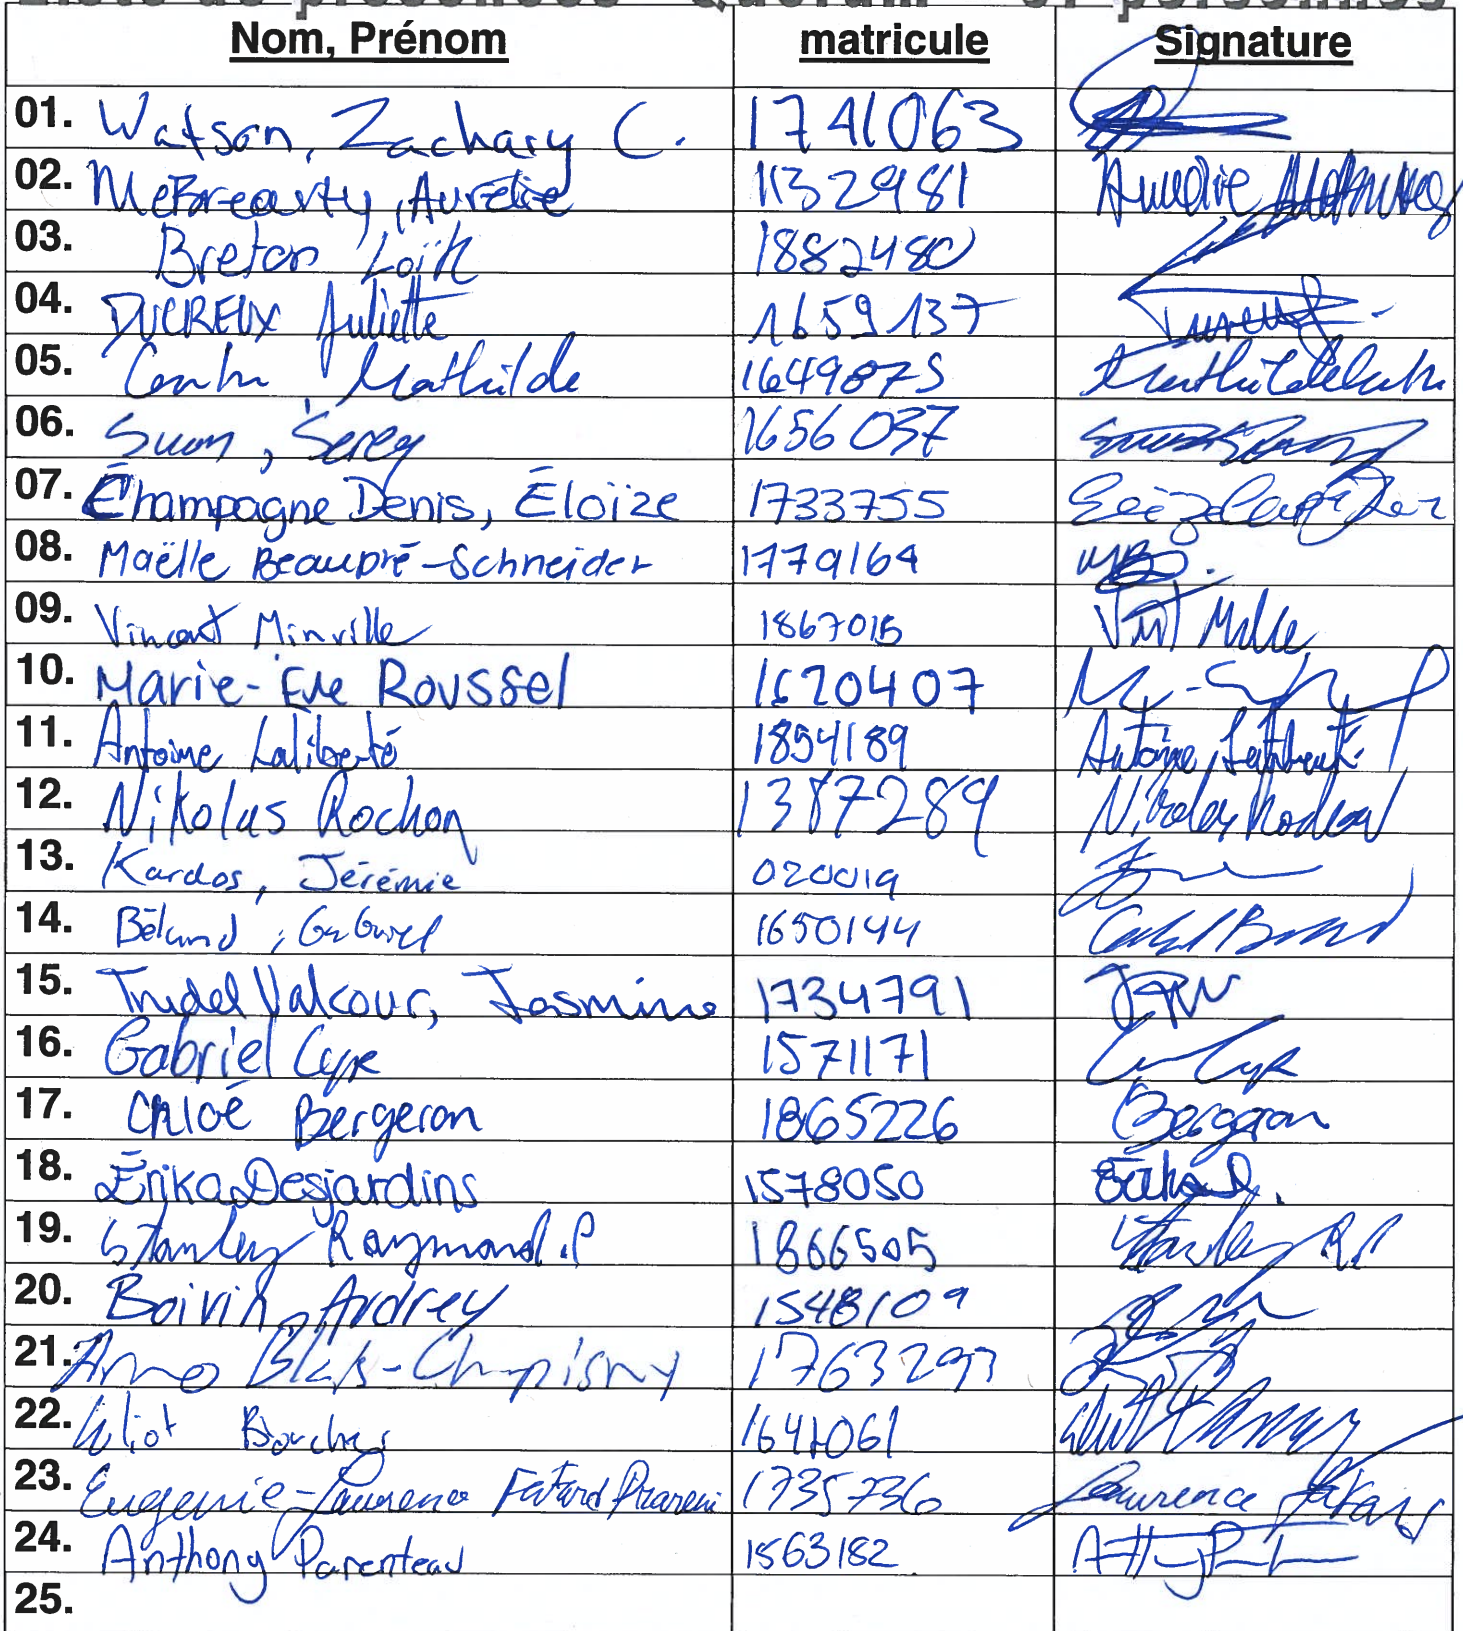 Nom, Prénom matricule Signature
01. Watson, Zachary C. 1741063
02. McBrearty, Aurélie 1132981 Aurélie
03. Breton Loïk 1882480
04. DUCREUX Juliette 1659137
05. Mathilde 1649875
06. Suon, Serey 1656037
07. Champagne Denis, Éloïze 1733755
08. Maëlle Beaupré-Schneider 1779164
09. Vincent Minville 1867015
10. Marie-Eve Roussel 1620407
11. Antoine Laliberté 1854189 Antoine Laliberté
12. Nikolas Rochon 1387289
13. Kardos, Jérémie 020019
14. Béland, Gabriel 1650144
15. Trudel Valcour, Jasmine 1734791 JTV
16. Gabriel Cyr 1571171 Cyr
17. Chloé Bergeron 1865226 Bergeron
18. Érika Desjardins 1578050 Erika D.
19. Stanley Raymond.P 1866505 Stanley R.P
20. Boivin, Audrey 1548109
21. Arno Blais-Champigny
22. Eliot 1641061
23. Eugenie-Laurence Fatard 1735736 Laurence Fatard
24. Anthony Parenteau 1563182
25.